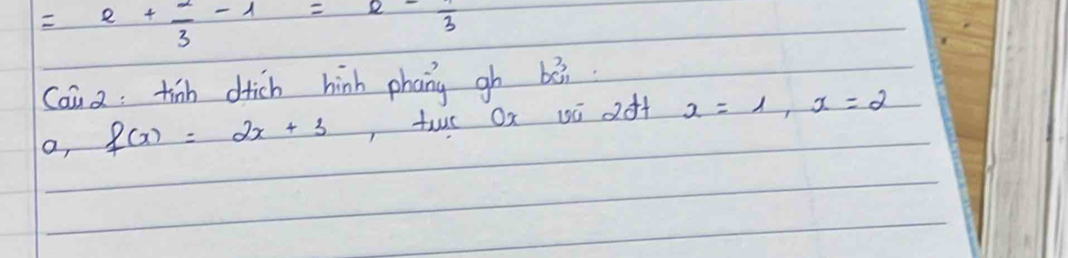 = e + 2/3 - 1 = e - 1/3
Câu 2: tính dtích hình phẳng gh bởi:
a, f(x) = 2x + 3, trục Ox và 2đt x = 1, x = 2